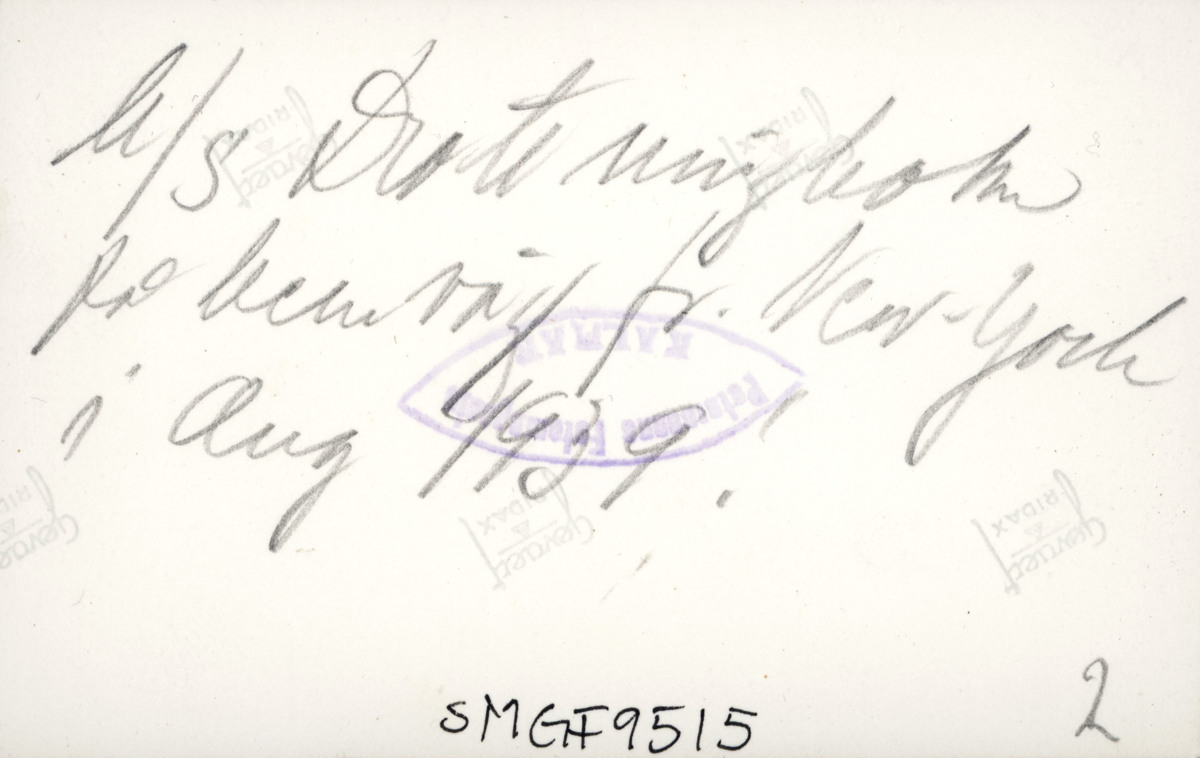 M/S Drottningholm
på hemväg fr. New-York
i Aug 1939!
KALMAR
Gevaert
RIDAX
Gevaert
RIDAX
Gevaert
RIDAX
Gevaert
RIDAX
Gevaert
RIDAX
2
SMGF9515